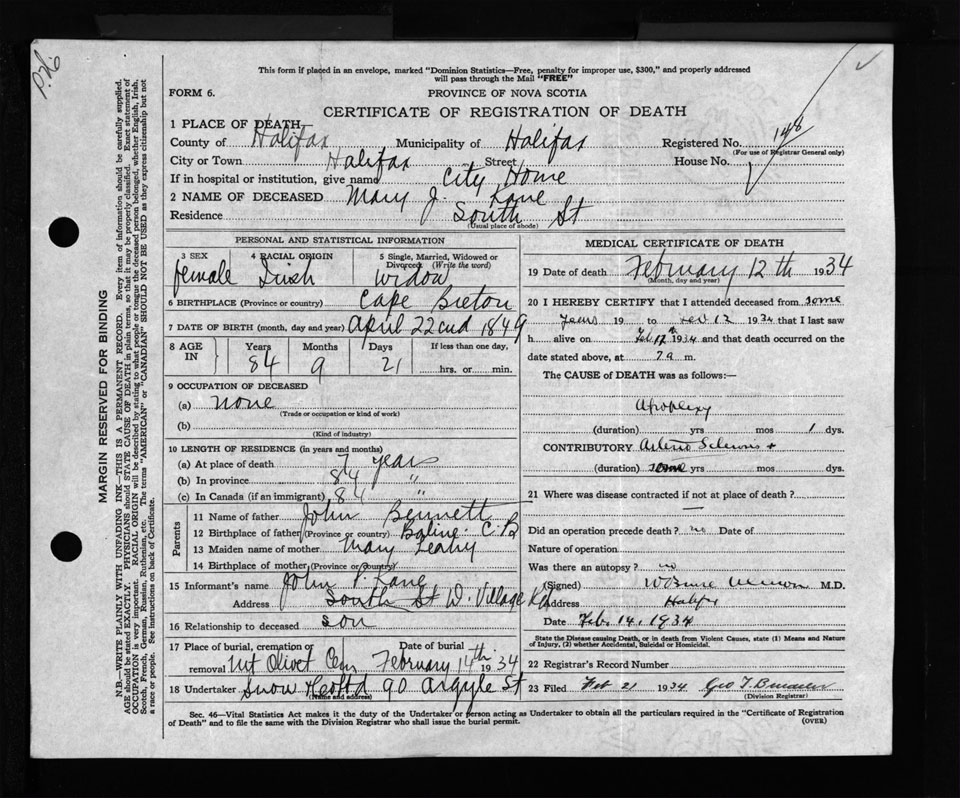 P.26
This form if placed in an envelope, marked "Dominion Statistics—Free, penalty for improper use, $300," and properly addressed
will pass through the Mail "FREE"
FORM 6.
PROVINCE OF NOVA SCOTIA
CERTIFICATE OF REGISTRATION OF DEATH
1 PLACE OF DEATH
County of Halifax Municipality of Halifax Registered No. 148
(For use of Registrar General only)
City or Town Halifax Street House No.
If in hospital or institution, give name City Home
2 NAME OF DECEASED Mary J. Kane
Residence South St
(Usual place of abode)
PERSONAL AND STATISTICAL INFORMATION
3 SEX 4 RACIAL ORIGIN 5 Single, Married, Widowed or
Divorced (Write the word)
female Irish Widow
6 BIRTHPLACE (Province or country) Cape Breton
7 DATE OF BIRTH (month, day and year) April 22cnd 1849
8 AGE IN Years Months Days If less than one day,
84 9 21 hrs. or min.
9 OCCUPATION OF DECEASED
(a) none
(Trade or occupation or kind of work)
(b)
(Kind of industry)
10 LENGTH OF RESIDENCE (in years and months)
(a) At place of death 7 years
(b) In province 84 "
(c) In Canada (if an immigrant) 84 "
Parents
11 Name of father John Bennett
12 Birthplace of father (Province or country) C.B
13 Maiden name of mother Mary Leahy
14 Birthplace of mother (Province or country)
15 Informant's name John P. Kane
Address South St W. Village Rd
16 Relationship to deceased son
17 Place of burial, cremation or removal Mt Olivet Cem Date of burial February 14th 1934
18 Undertaker Snow & Co Ltd 90 Argyle St
(Name and address)
MEDICAL CERTIFICATE OF DEATH
19 Date of death February 12th 1934
(Month, day and year)
20 I HEREBY CERTIFY that I attended deceased from some
years 19 to Feb 12 1934 that I last saw
h alive on Feb. 12th 1934 and that death occurred on the
date stated above, at 7 a. m.
The CAUSE of DEATH was as follows:—
Apoplexy
(duration) yrs mos 1 dys.
CONTRIBUTORY Arterio Sclerosis +
(duration) some yrs mos dys.
21 Where was disease contracted if not at place of death? —
Did an operation precede death? no Date of
Nature of operation
Was there an autopsy? no
(Signed) M.D.
Address Halifax
Date Feb. 14, 1934
State the Disease causing Death, or in death from Violent Causes, state (1) Means and Nature
of Injury, (2) whether Accidental, Suicidal or Homicidal.
22 Registrar's Record Number
23 Filed Feb 21 1934 Geo T.
(Division Registrar)
Sec. 46—Vital Statistics Act makes it the duty of the Undertaker or person acting as Undertaker to obtain all the particulars required in the "Certificate of Registration
of Death" and to file the same with the Division Registrar who shall issue the burial permit. (OVER)
MARGIN RESERVED FOR BINDING
N.B.—WRITE PLAINLY WITH UNFADING INK—THIS IS A PERMANENT RECORD. Every item of information should be carefully supplied.
AGE should be stated EXACTLY. PHYSICIANS should STATE CAUSE OF DEATH in plain terms, so that it may be properly classified. Exact statement of
OCCUPATION is very important. RACIAL ORIGIN will be described by stating to what people or tongue the deceased person belonged, whether English, Irish,
Scotch, French, German, Russian, Ruthenian, etc. The terms "AMERICAN" or "CANADIAN" SHOULD NOT BE USED as they express citizenship but not
a race or people. See instructions on back of Certificate.